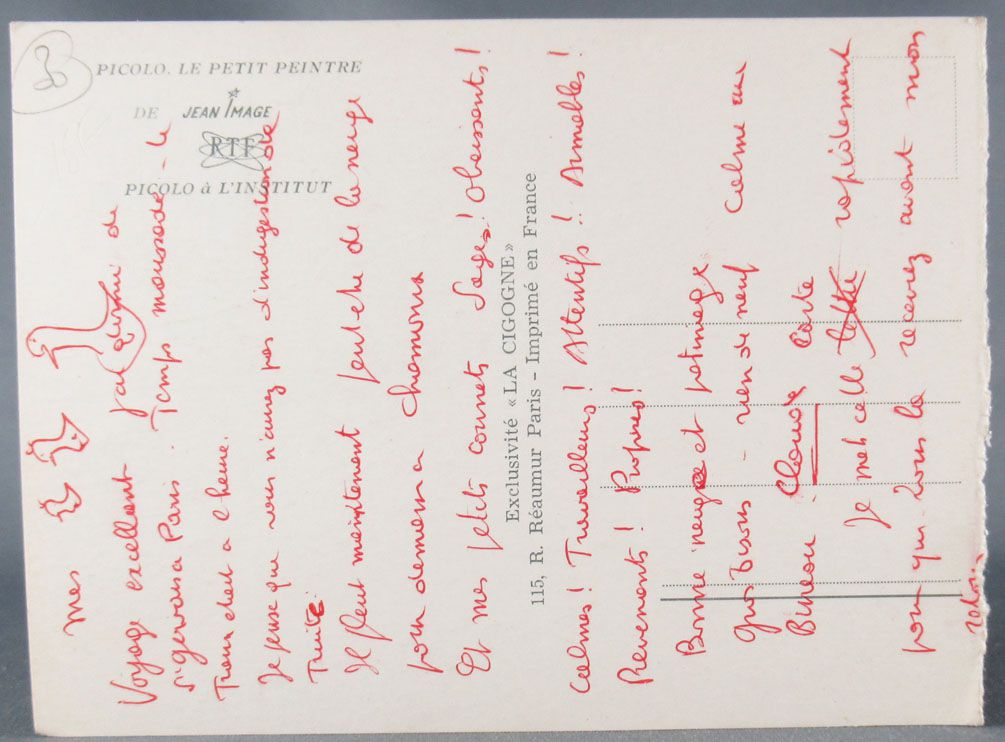 PICOLO. LE PETIT PEINTRE
DE JEAN IMAGE
RTF
PICOLO à L'INSTITUT
Exclusivité « LA CIGOGNE »
115, R. Réaumur Paris - Imprimé en France
mes
Voyage excellent j'ai dormi de
St gervais a Paris. Temps maussade - le
Train etait a l'heure.
Je pense que vous n'aurez pas d'indigestion de
Truite.
Il pleut maintenant peut etre de la neige
pour demain a chamonix
Et mes petits cornets Sages! Obeissants!
Calmes! Travailleurs! Attentifs!! Aimables!
Prevenants! Propres!
Bonne neige et patinage
gros bisous - rien de neuf calme au
Bureau
Je mets cette lettre carte rapidement
pour que vous la recevez avant mon
retour